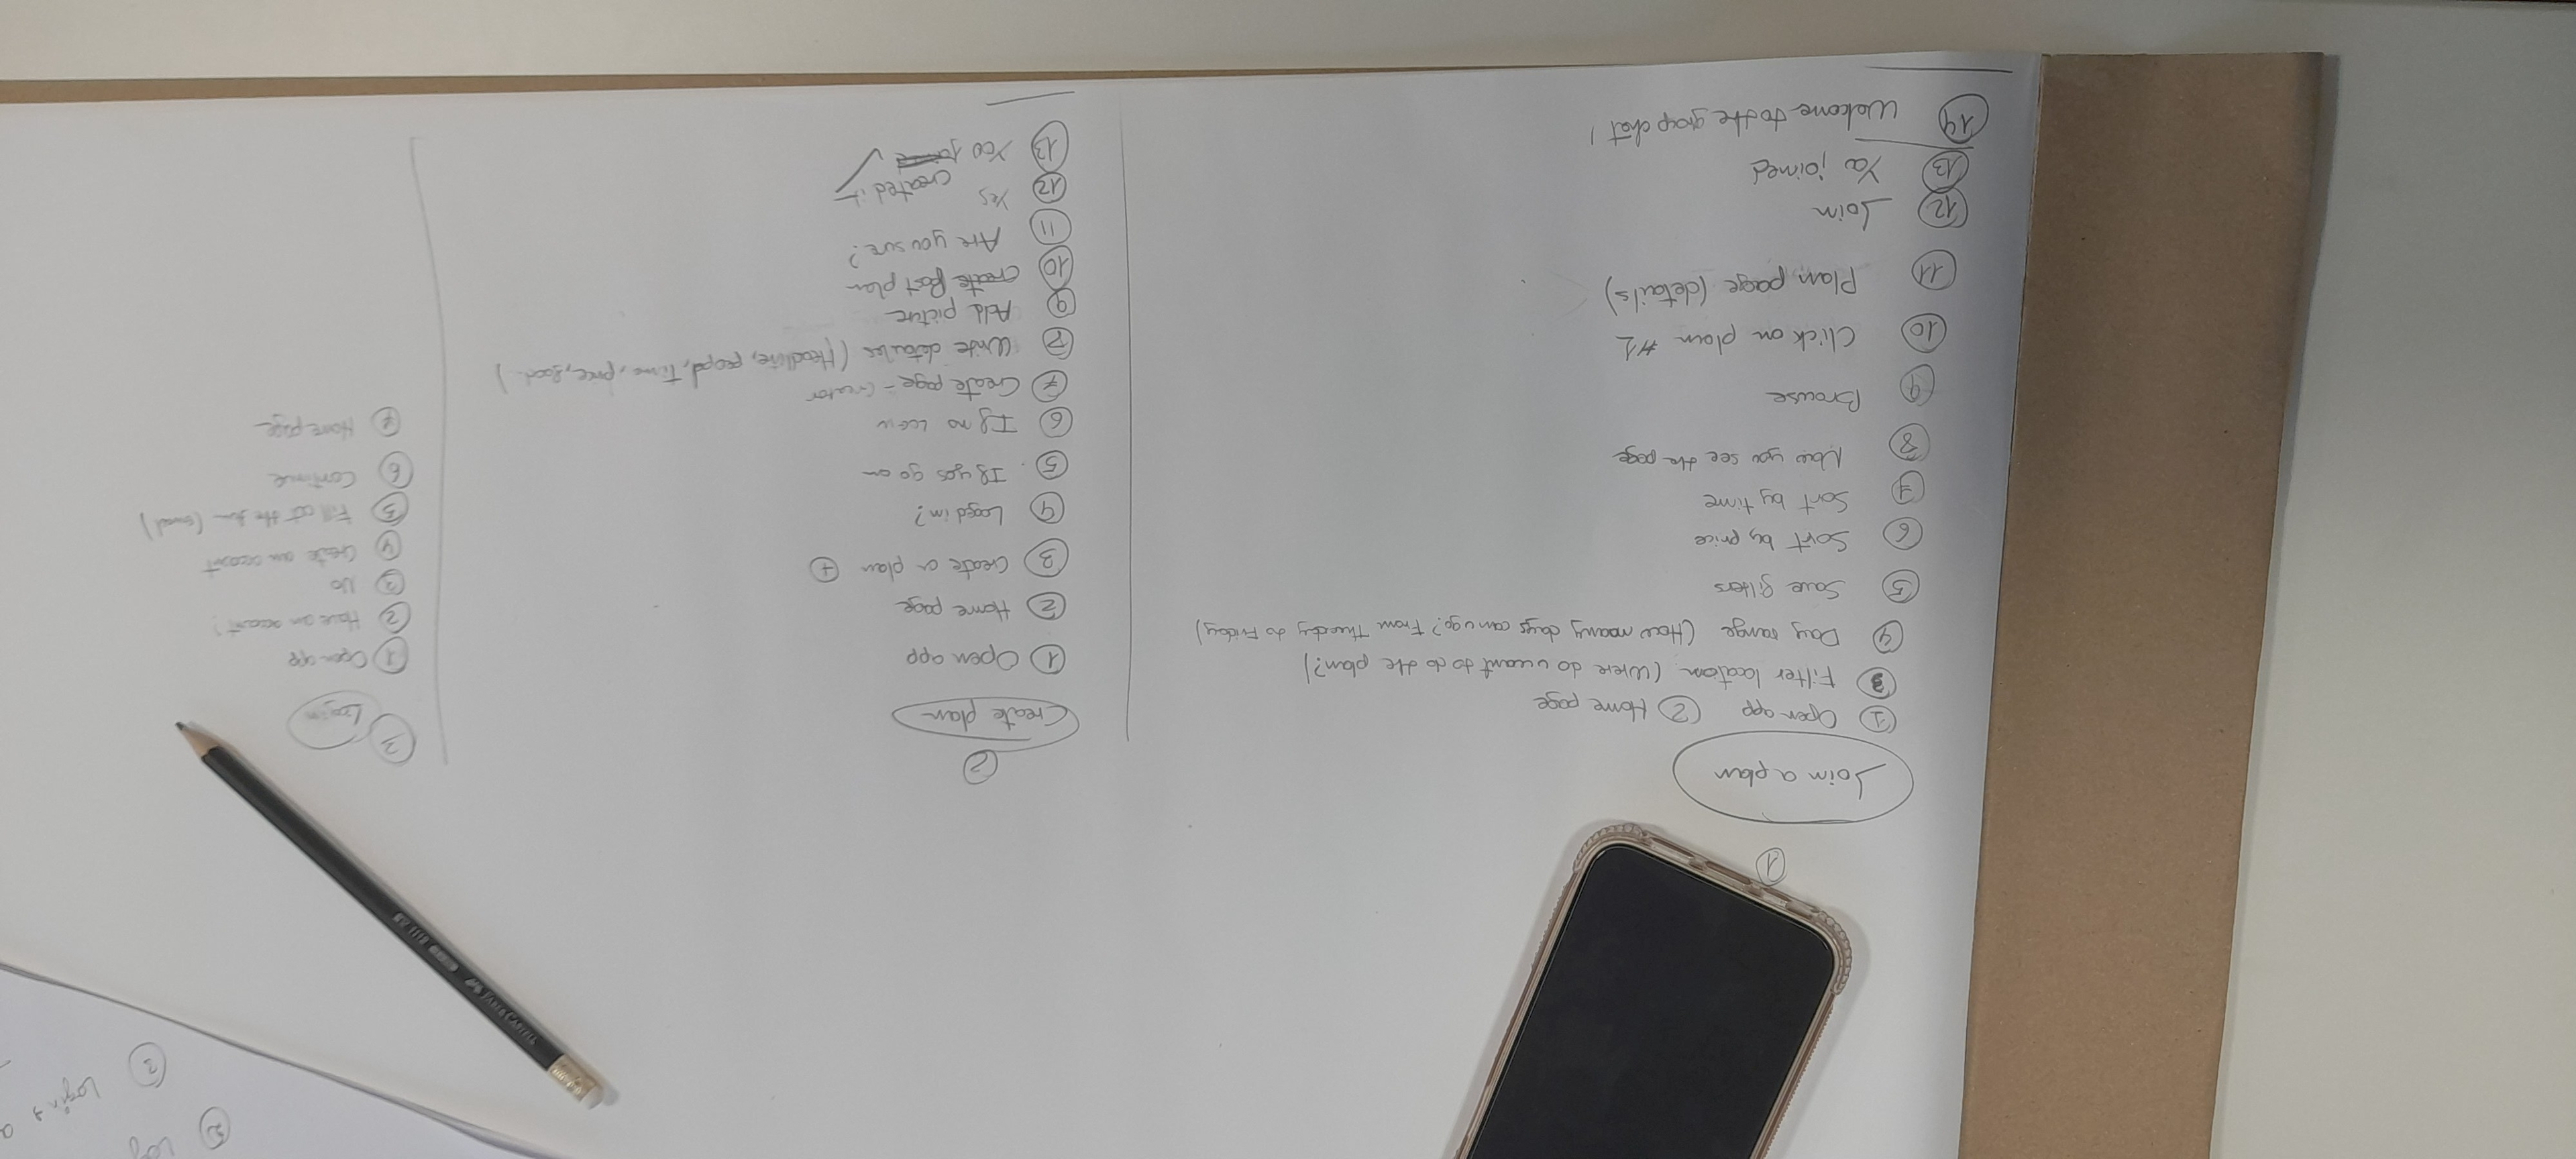 1
Join a plan
1 Open app 2 Home page
3 Filter location (Where do u want to do the plan?)
4 Day range (How many days can u go? From Thursday to Friday)
5 Save filters
6 Sort by price
7 Sort by time
8 Now you see the page
9 Browse
10 Click on plan #1
11 Plan page (details)
12 Join
13 You joined
14 Welcome to the group chat!
2
Create plan
1 Open app
2 Home page
3 Create a plan +
4 Loged in?
5 If yes go on
6 If no
7 Create page - Creator
8 Write detailes (Headline, people, Time, price,
9 Add picture
10 Create Post plan
11 Are you sure?
12 Yes
13 You
created it
3 Login
1 Open app
2 Have an account?
3 No
4 Create an account
5 Fill out the
6 Continue
7 Home page
FABER CASTELL
3 Login
2 Log